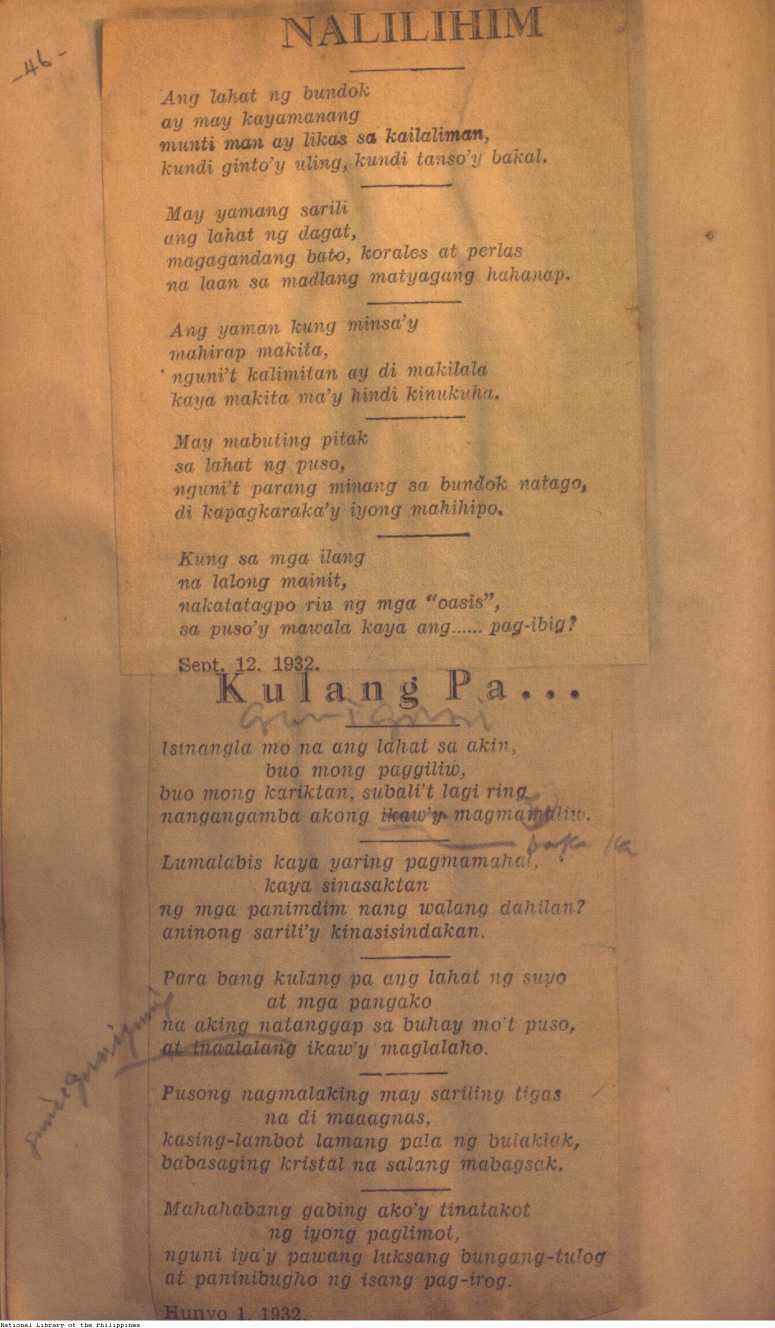 -46-
NALILIHIM
Ang lahat ng bundok
ay may kayamanang
munti man ay likas sa kailaliman,
kundi ginto'y uling, kundi tanso'y bakal.
May yamang sarili
ang lahat ng dagat,
magagandang bato, korales at perlas
na laan sa madlang matyagang hahanap.
Ang yaman kung minsa'y
mahirap makita,
nguni't kalimitan ay di makilala
kaya makita ma'y hindi kinukuha.
May mabuting pitak
sa lahat ng puso,
nguni't parang minang sa bundok natago,
di kapagkaraka'y iyong mahihipo.
Kung sa mga ilang
na lalong mainit,
nakatatagpo rin ng mga "oasis",
sa puso'y mawala kaya ang...... pag-ibig?
Sept. 12, 1932.
Kulang Pa...
Guniguni
Isinangla mo na ang lahat sa akin,
buo mong paggiliw,
buo mong kariktan, subali't lagi ring
nangangamba akong ikaw'y magmamaliw.
baka ka
Lumalabis kaya yaring pagmamahal,
kaya sinasaktan
ng mga panimdim nang walang dahilan?
aninong sarili'y kinasisindakan.
Para bang kulang pa ang lahat ng suyo
at mga pangako
na aking natanggap sa buhay mo't puso,
at inaalalang ikaw'y maglalaho.
Pusong nagmalaking may sariling tigas
na di maaagnas,
kasing-lambot lamang pala ng bulaklak,
babasaging kristal na salang mabagsak.
Mahahabang gabing ako'y tinatakot
ng iyong paglimot,
nguni iya'y pawang luksang bungang-tulog
at paninibugho ng isang pag-irog.
Hunyo 1, 1932.
National Library of the Philippines